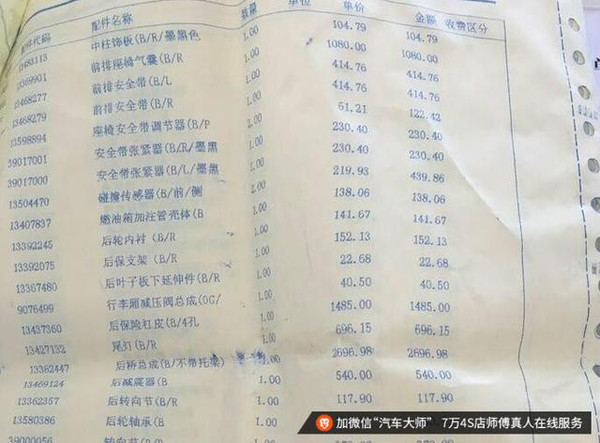 配件代码 配件名称 数量 单位 单价 金额 收费区分
13483113 中柱饰板(B/R/墨黑色 1.00 104.79 104.79
13369901 前排座椅气囊(B/R 1.00 1080.00 1080.00
13468277 前排安全带(B/L 1.00 414.76 414.76
13468279 前排安全带(B/R 1.00 414.76 414.76
13598894 座椅安全带调节器(B/P 2.00 61.21 122.42
39017001 安全带张紧器(B/R/墨黑 1.00 230.40 230.40
39017000 安全带张紧器(B/L/墨黑 1.00 230.40 230.40
13504470 碰撞传感器(B/前/侧 2.00 219.93 439.86
13407837 燃油箱加注管壳体(B 1.00 138.06 138.06
13392245 后轮内衬 (B/R 1.00 141.67 141.67
13392075 后保支架 (B/R 1.00 152.13 152.13
13367480 后叶子板下延伸件(B/R 1.00 22.68 22.68
9076499 行李厢减压阀总成(OG/ 1.00 40.50 40.50
13437360 后保险杠皮(B/4孔 1.00 1485.00 1485.00
13427132 尾灯(B/R 1.00 696.15 696.15
13362447 后桥总成(B/不带托架) 1.00 2696.98 2696.98
13469124 后减震器(B 1.00 540.00 540.00
13362357 后转向节(B/R 1.00 117.90 117.90
13580386 后轮轴承(B 1.00
39000056 转向节(B
加微信“汽车大师” 7万4S店师傅真人在线服务